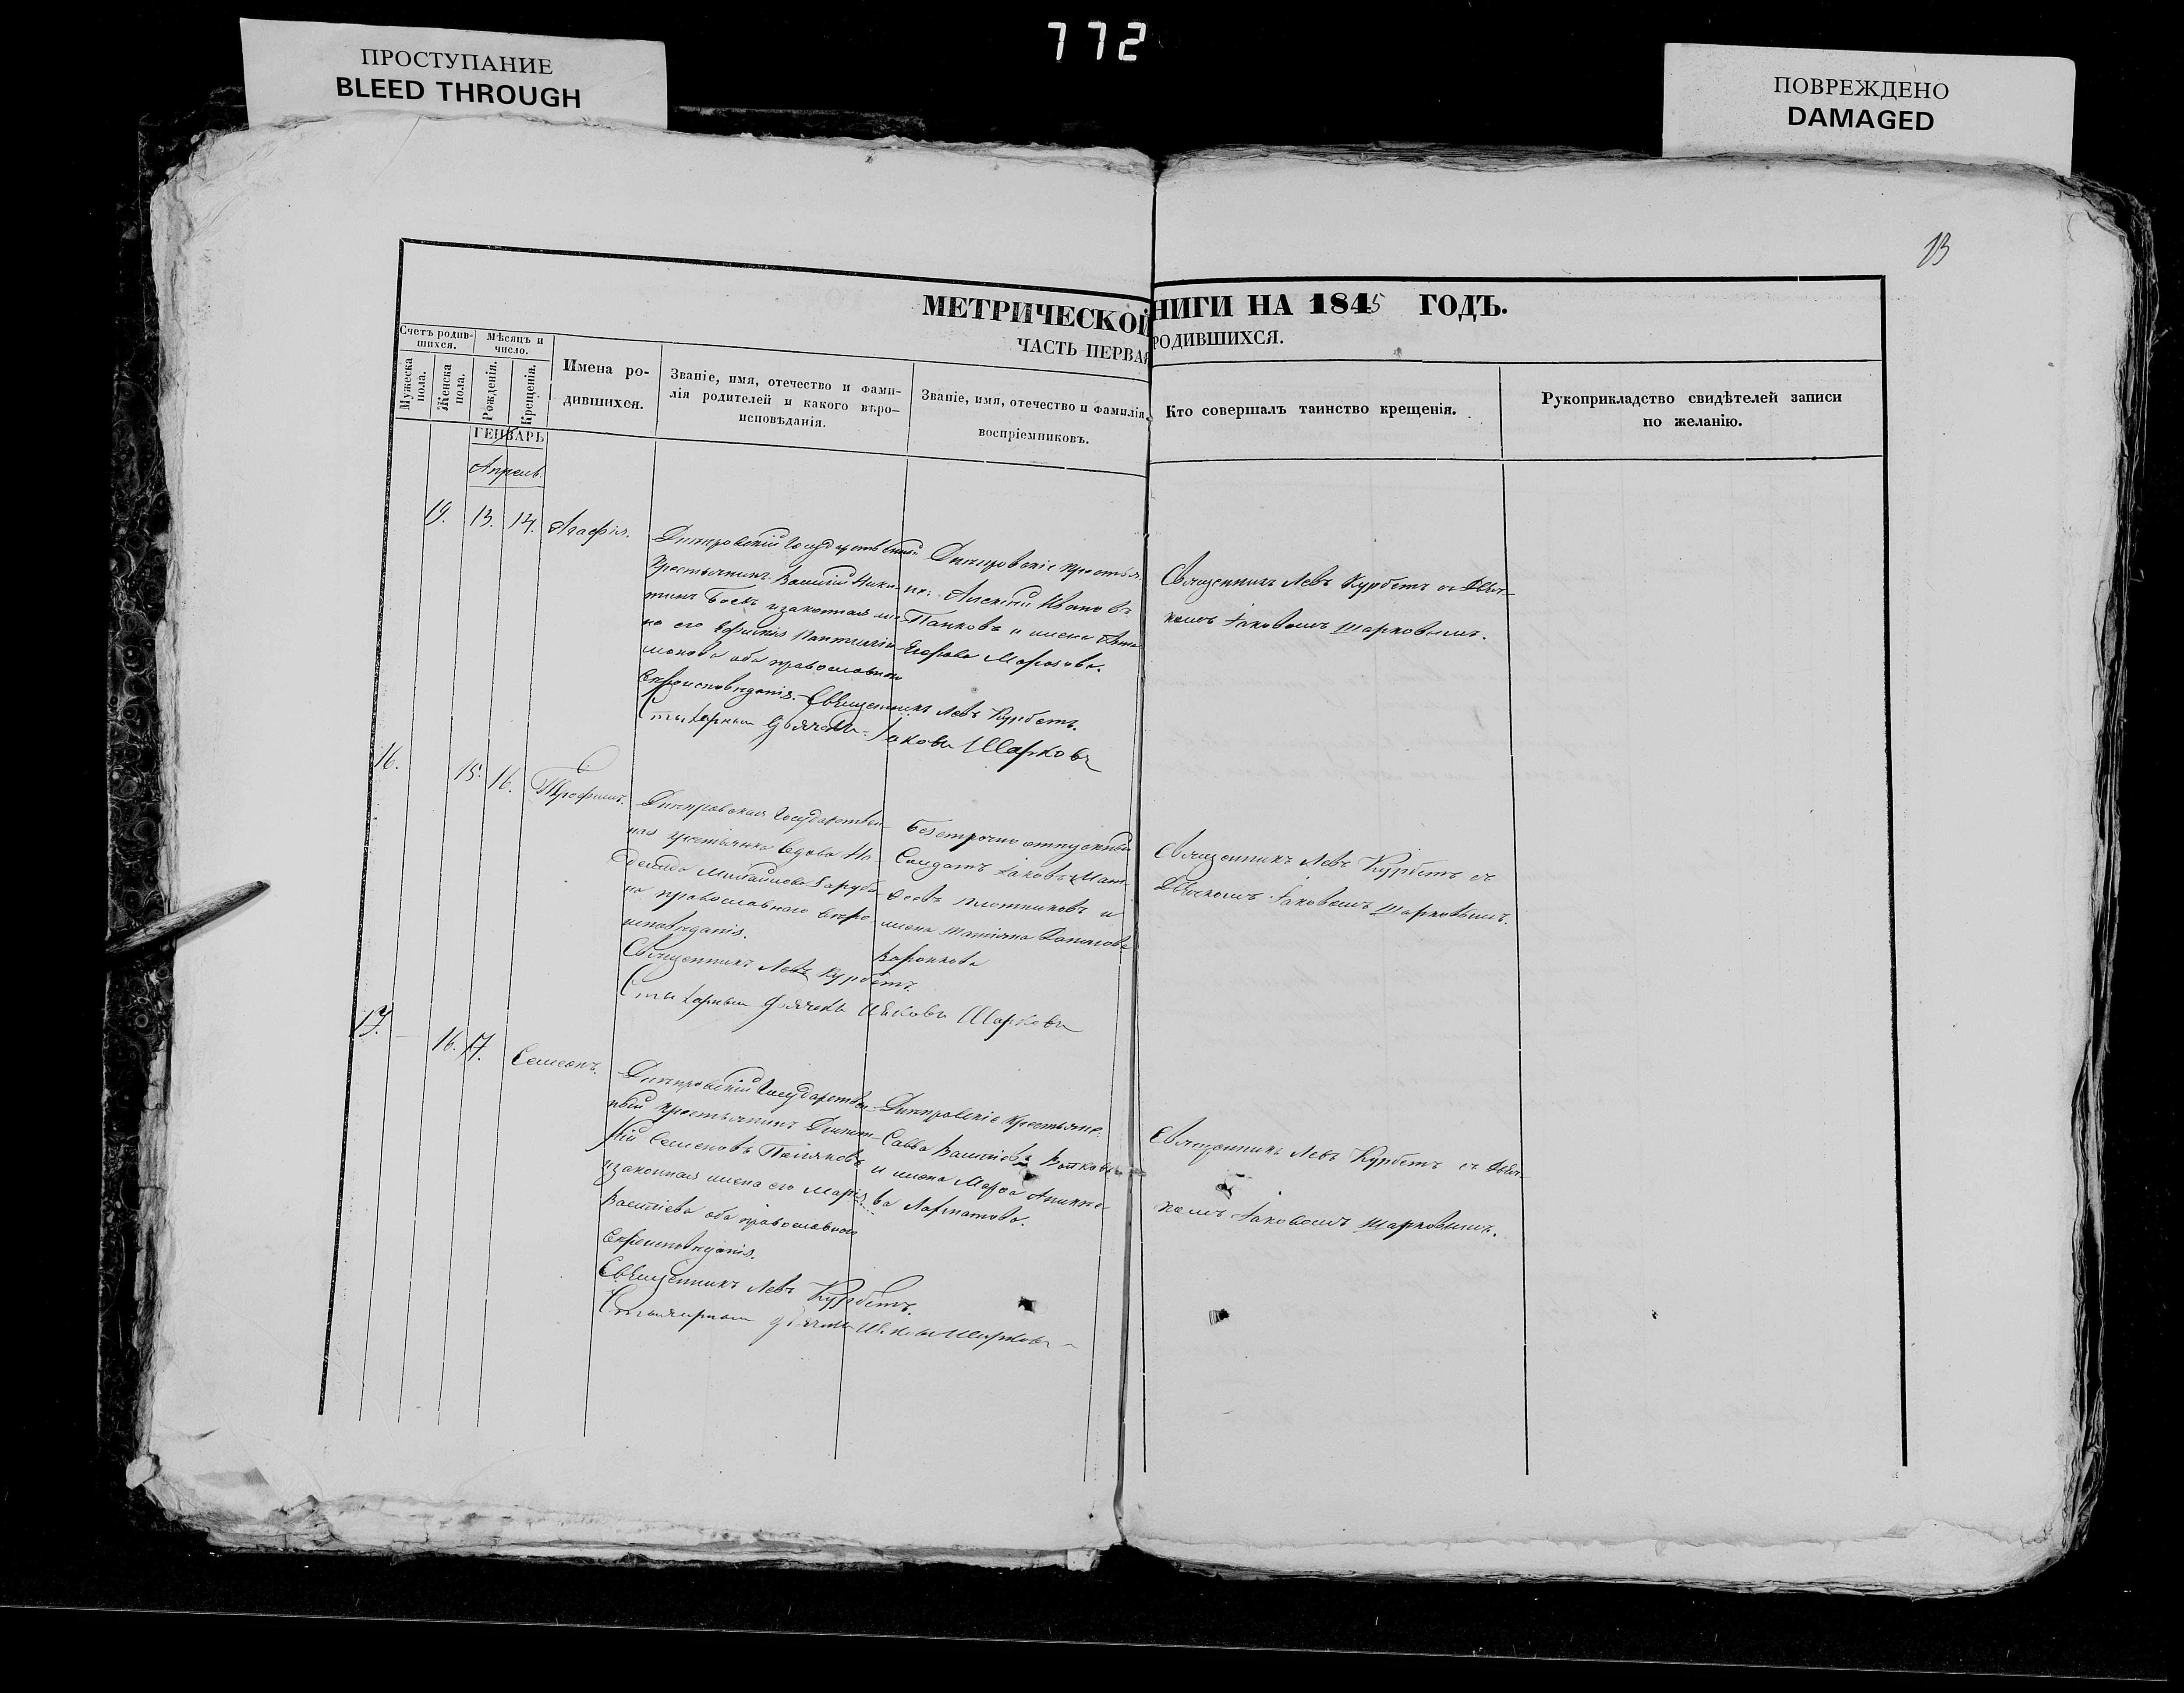 772
ПРОСТУПАНИЕ
BLEED THROUGH
ПОВРЕЖДЕНО
DAMAGED
13
МЕТРИЧЕСКОЙ
НИГИ НА 1845 ГОДЪ.
ЧАСТЬ ПЕРВАЯ
РОДИВШИХСЯ.
Счетъ родив-
шихся.
Мужеска
пола.
Женска
пола.
Мѣсяцъ и
число.
Рожденія.
Крещенія.
Имена ро-
дившихся.
Званіе, имя, отечество и фами-
лія родителей и какого вѣро-
исповѣданія.
Званіе, имя, отечество и фамилія
воспріемниковъ.
Кто совершалъ таинство крещенія.
Рукоприкладство свидѣтелей записи
по желанію.
ГЕНВАРЬ
Апрель.
19. 13. 14. Агафія.
Днепровскій Государственный
крестьянинъ Василій Ники-
тинъ Боевъ и законная же-
на его Ефимія Пантилій-
монова оба православнаго
вероисповеданія. Священникъ Левъ Курбетъ.
Стихарный Дьячекъ Іаковъ Шарковъ
Днепровскіе крестья-
не: Алексей Ивановъ
Папковъ и жена
Егорова Морозова.
Священникъ Левъ Курбетъ съ Дьяч-
комъ Іаковомъ Шарковымъ.
16. 15. 16. Трофимъ.
Днепровская Государствен-
ная крестьянка вдова
Михайлова
на православнаго веро-
исповеданія.
Священникъ Левъ Курбетъ.
Стихарный Дьячекъ Иаковъ Шарковъ
Безсрочно отпускный
Солдатъ Іаковъ Мат-
веевъ Плотниковъ и
жена Татіяна
Священникъ Левъ Курбетъ съ
Дьячкомъ Іаковомъ Шарковымъ.
17. — 16. 17. Семеонъ.
Днепровскій Государствен-
ный крестьянинъ Димит-
рій Семеновъ
и законная жена его Марія
Василіева оба православнаго
вероисповеданія.
Священникъ Левъ Курбетъ.
Стихарный Дьячекъ Иаковъ Шарковъ
Днепровскіе крестьяне:
Савва Василіевъ
и жена Марфа
ва
Священникъ Левъ Курбетъ съ Дьяч-
комъ Іаковомъ Шарковымъ.